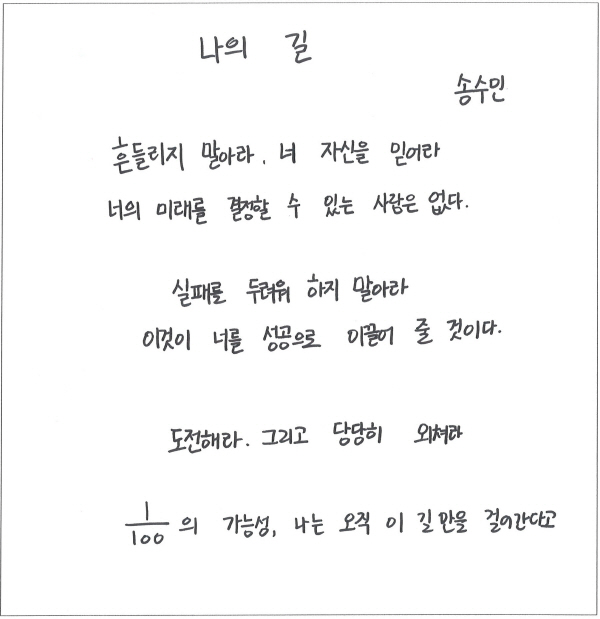 나의 길
송수민
흔들리지 말아라. 너 자신을 믿어라
너의 미래를 결정할 수 있는 사람은 없다.
실패를 두려워 하지 말아라
이것이 너를 성공으로 이끌어 줄 것이다.
도전해라. 그리고 당당히 외쳐라
1/100 의 가능성, 나는 오직 이 길만을 걸어간다고